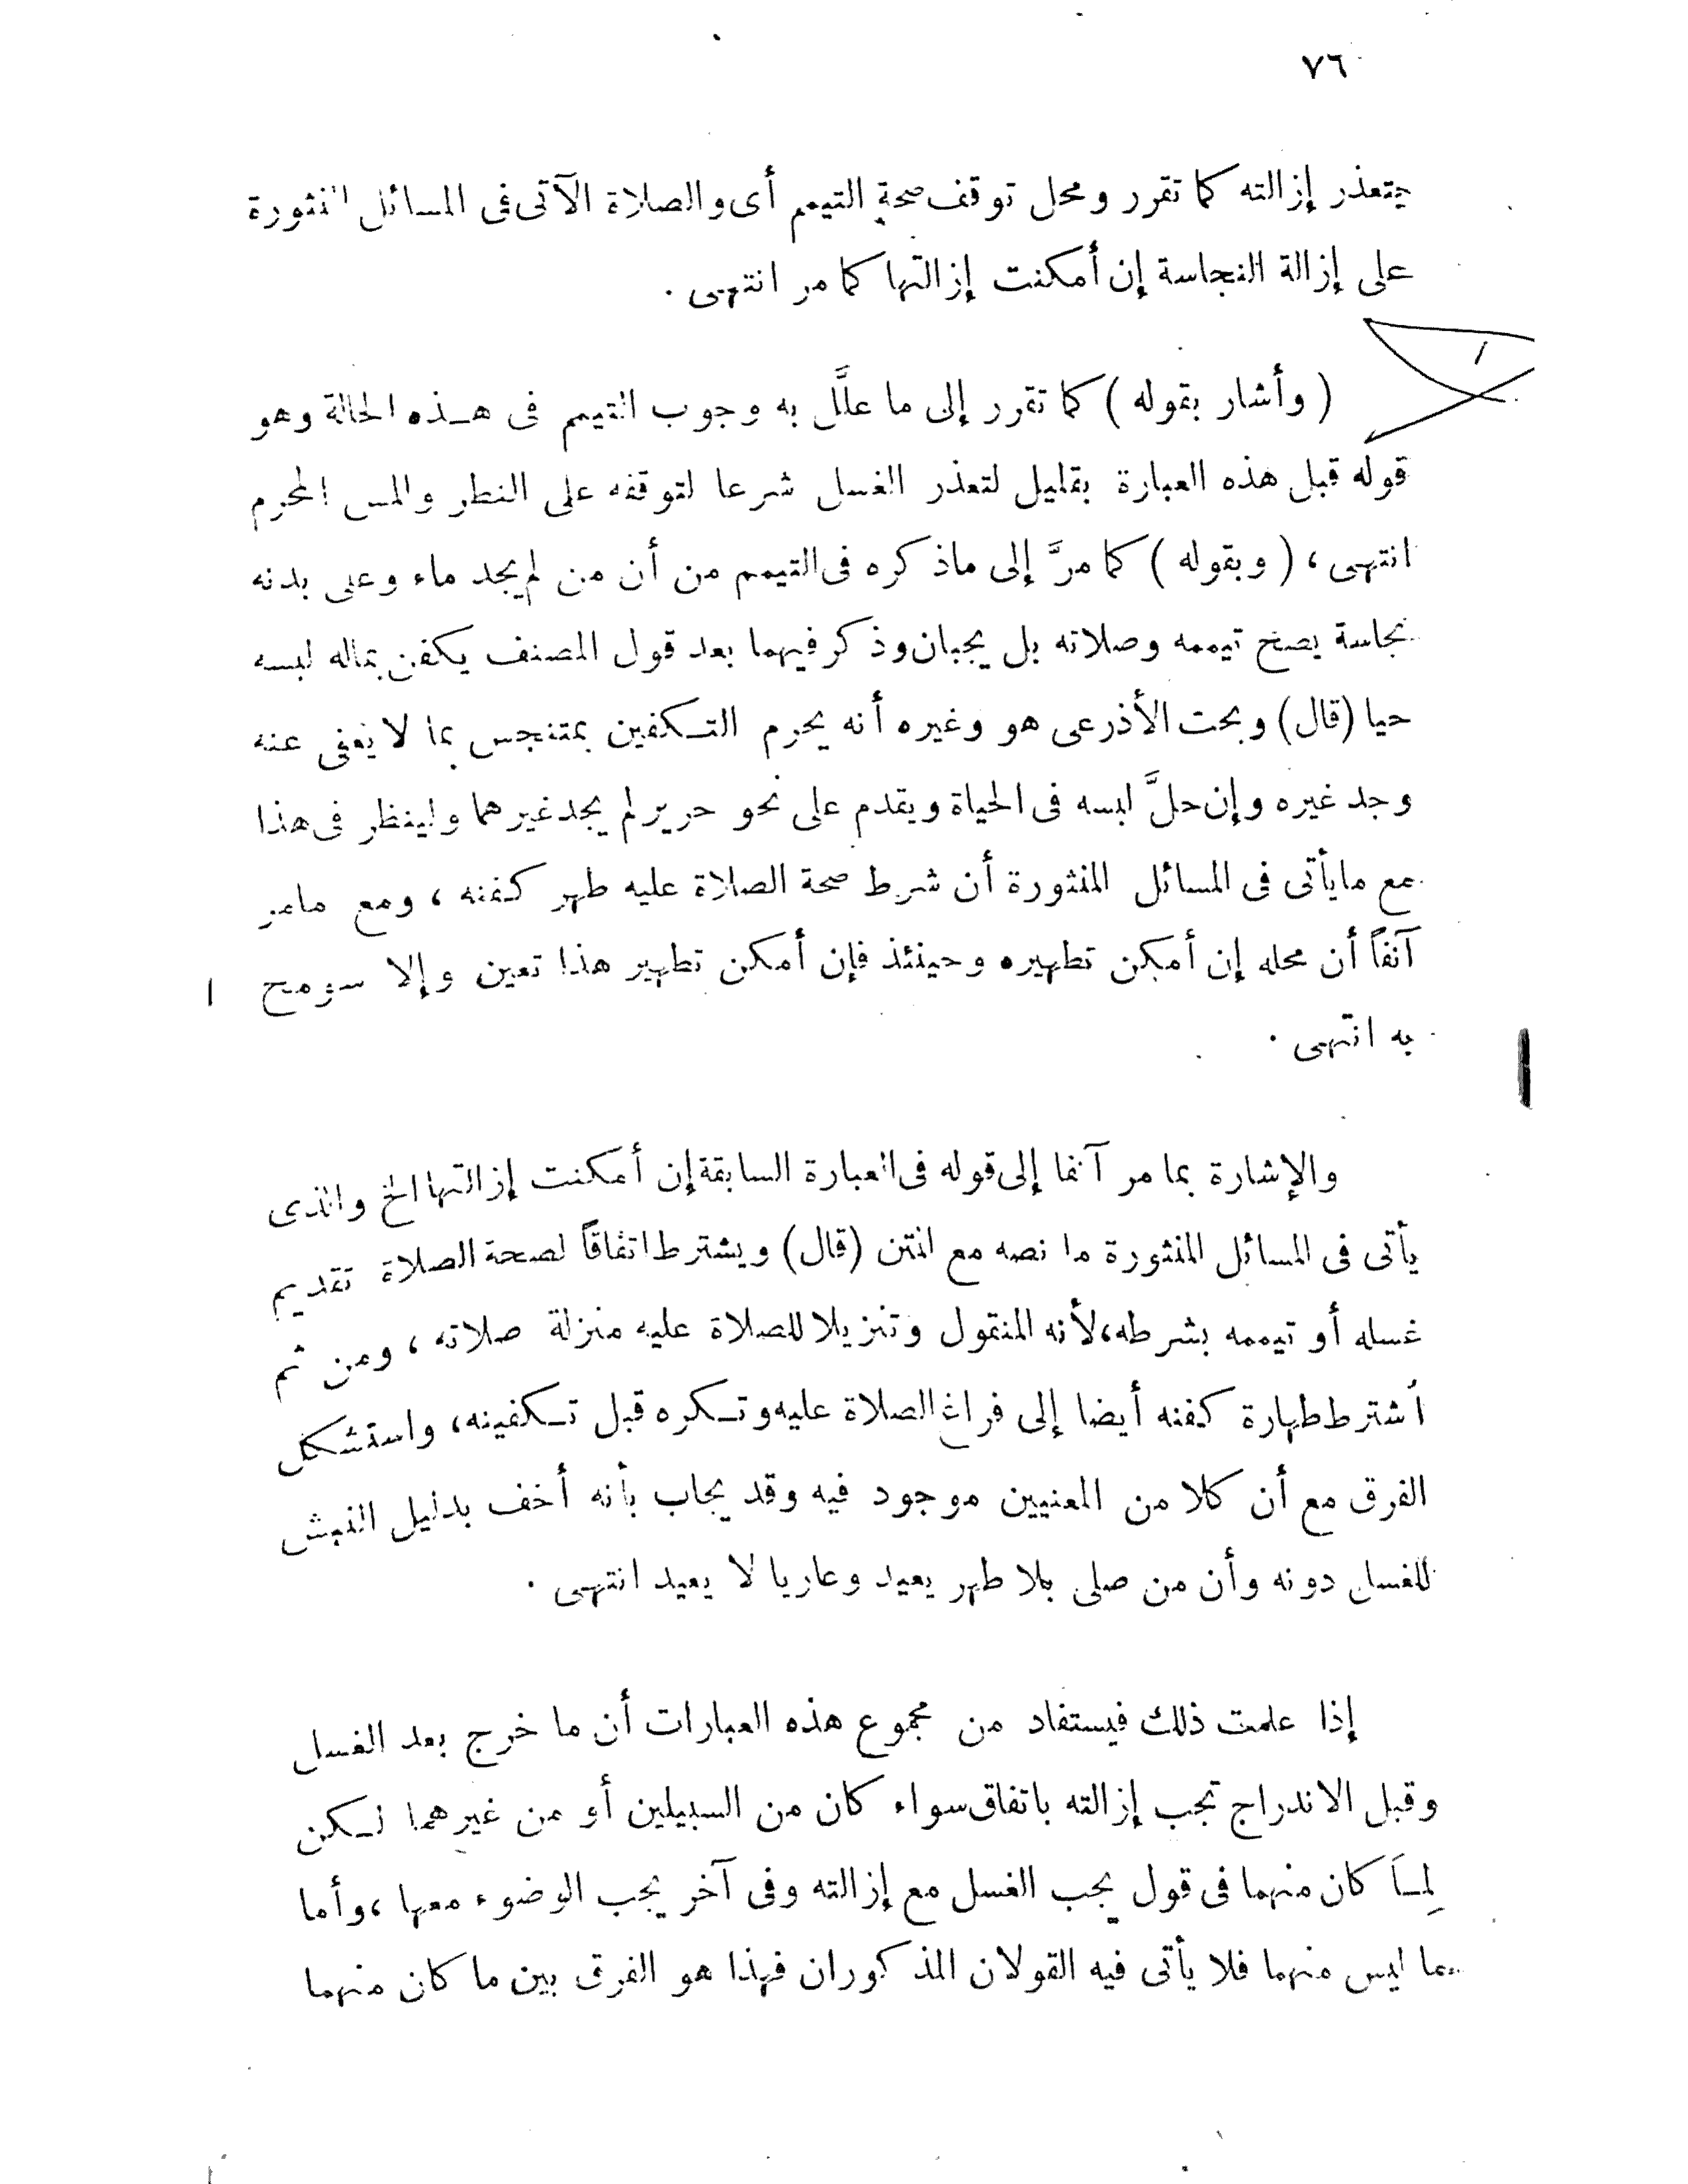 ٧٦
يتعذر إزالته كما تقرر ومحل توقف صحة التيمم أى والصلاة الآتى فى المسائل المنثورة
على إزالة النجاسة إن أمكنت إزالتها كما مر انتهى .
( وأشار بقوله ) كما تقرر إلى ما علَّل به وجوب التيمم فى هـذه الحالة وهو
قوله قبل هذه العبارة بقليل لتعذر الغسل شرعا لتوقفه على النظر والمس المحرم
انتهى ، ( وبقوله ) كما مرَّ إلى ماذكره فى التيمم من أن من لم يجد ماء وعلى بدنه
نجاسة يصح تيممه وصلاته بل يجبان وذكر فيهما بعد قول المصنف يكفن بماله لبسه
حيا (قال) وبحث الأذرعى هو وغيره أنه يحرم التـكفين بمتنجس بما لا يعفى عنه
وجد غيره وإن حلَّ لبسه فى الحياة ويقدم على نحو حرير لم يجد غيرهما ولينظر فى هذا
مع مايأتى فى المسائل المنثورة أن شرط صحة الصلاة عليه طهر كفنه ، ومع مامر
آنفاً أن محله إن أمكن تطهيره وحينئذ فإن أمكن تطهير هذا تعين وإلا سومح
به انتهى .
والإشارة بما مر آنفا إلى قوله فى العبارة السابقة إن أمكنت إزالتها الخ والذى
يأتى فى المسائل المنثورة ما نصه مع المتن (قال) ويشترط اتفاقاً لصحة الصلاة تقديم
غسله أو تيممه بشرطه، لأنه المنقول وتنزيلا للصلاة عليه منزلة صلاته ، ومن ثم
اُشترط طهارة كفنه أيضا إلى فراغ الصلاة عليه وتـكره قبل تـكفينه، واستشكل
الفرق مع أن كلا من المعنيين موجود فيه وقد يجاب بأنه أخف بدليل النبش
للغسل دونه وأن من صلى بلا طهر يعيد وعاريا لا يعيد انتهى .
إذا علمت ذلك فيستفاد من مجموع هذه العبارات أن ما خرج بعد الغسل
وقبل الاندراج تجب إزالته باتفاق سواء كان من السبيلين أو من غيرهما لـكن
لِمـَا كان منهما فى قول يجب الغسل مع إزالته وفى آخر يجب الوضوء معها ، وأما
ما ليس منهما فلا يأتى فيه القولان المذكوران فهذا هو الفرق بين ما كان منهما